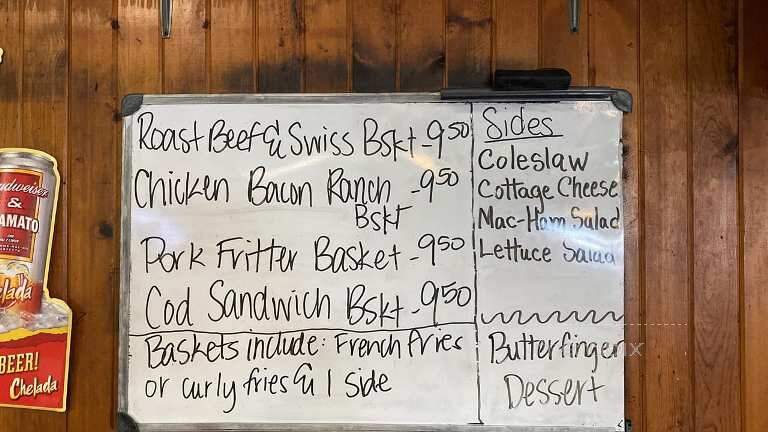 Roast Beef & Swiss Bskt - 9.50
Chicken Bacon Ranch - 9.50
Bskt
Pork Fritter Basket - 9.50
Cod Sandwich Bskt - 9.50
Baskets include: French fries
or curly fries & 1 side
Sides
Coleslaw
Cottage Cheese
Mac-Ham Salad
Lettuce Salad
Butterfinger
Dessert
Budweiser
&
AMATO
elada
BEER!
Chelada